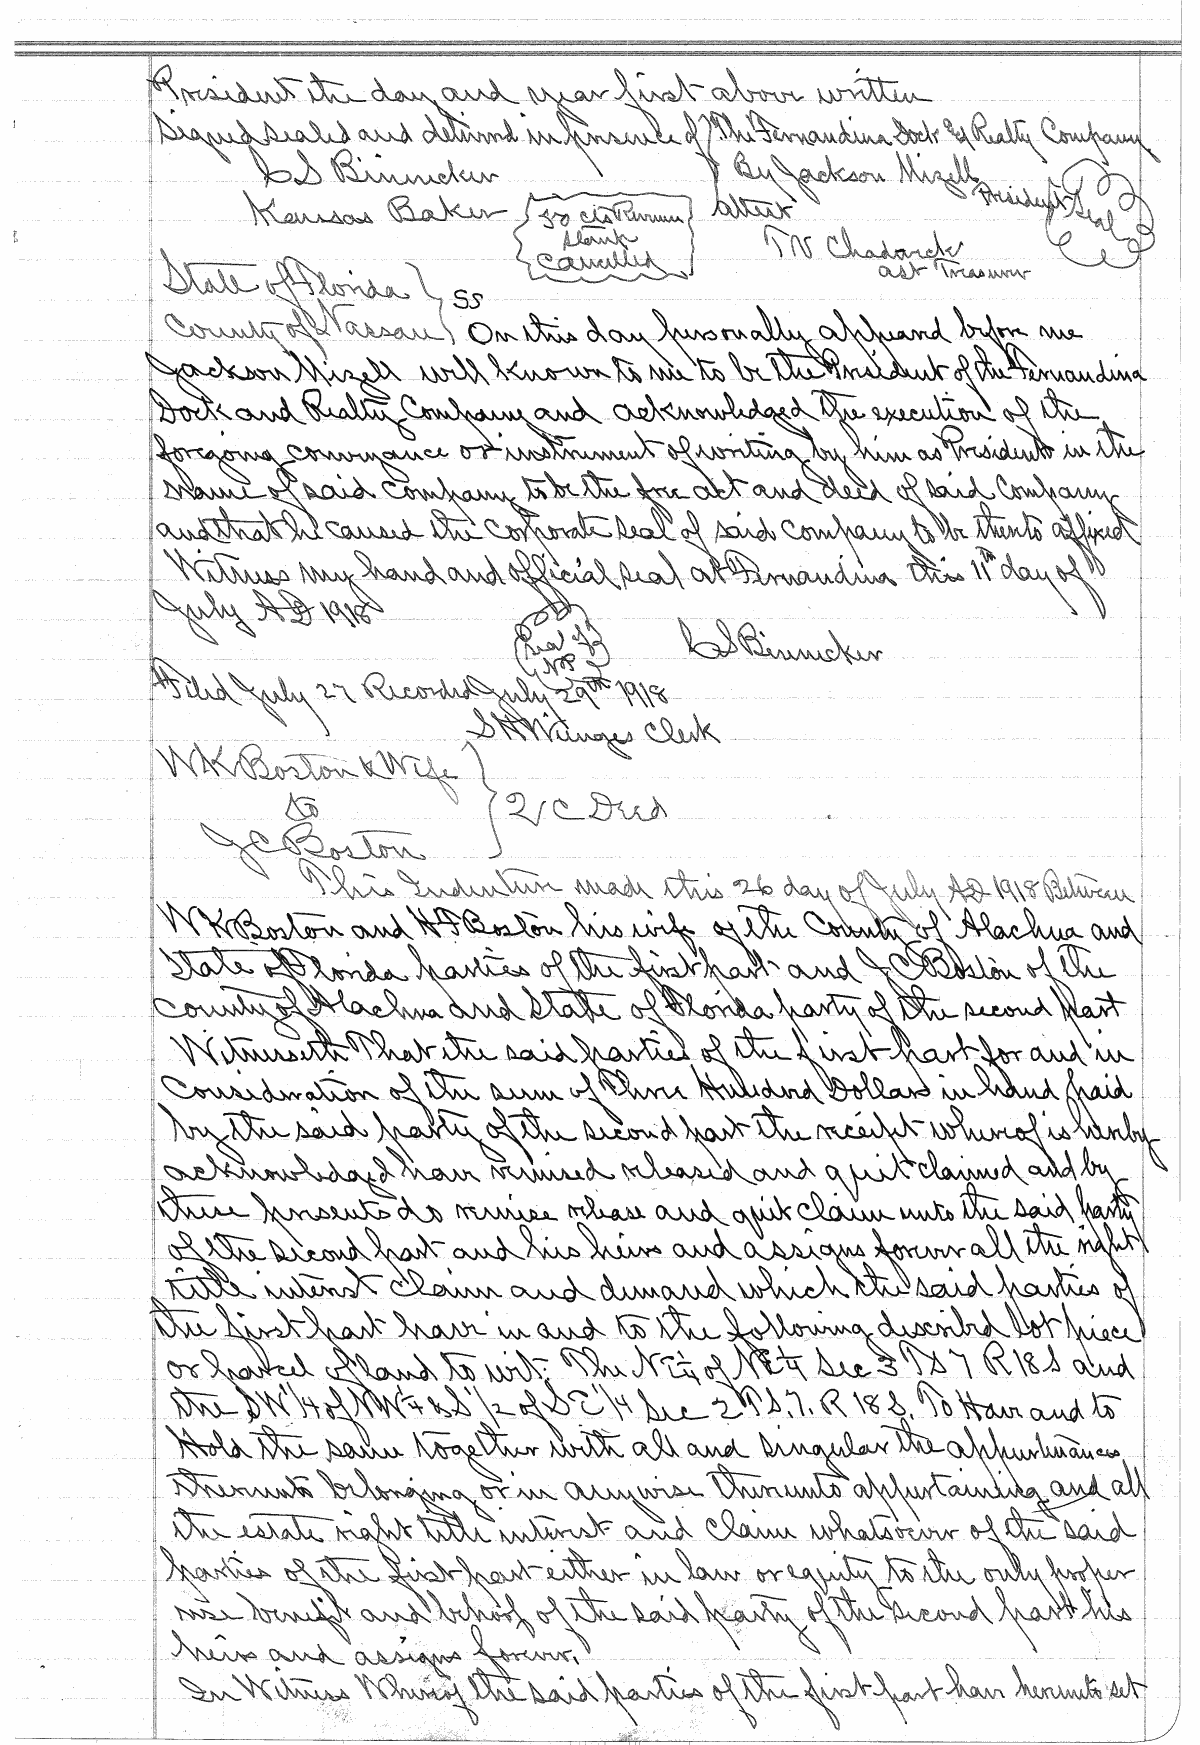 President the day and year first above written
Signed sealed and delivered in presence of } The Fernandina Dock & Realty Company
C S Binnicker } By Jackson Mizell
President Seal
Kansas Baker { 50 cts Revenue Stamp Cancelled } Attest
T N Chadwick
ast Treasurer
State of Florida }
County of Nassau } SS On this day personally appeared before me
Jackson Mizell well known to me to be the President of the Fernandina
Dock and Realty Company and acknowledged the execution of the
foregoing conveyance or instrument of writing by him as President in the
name of said Company to be the free act and deed of said Company
and that he caused the Corporate Seal of said Company to be thereto affixed
Witness my hand and official seal at Fernandina this 11th day of
July AD 1918
(Seal of NP) C S Binnicker
Filed July 27 Recorded July 29th 1918
Clerk
W K Boston & Wife }
to } Q/C Deed
J C Boston }
This Indenture made this 26 day of July AD 1918 Between
W K Boston and H F Boston his wife of the County of Alachua and
State of Florida parties of the first part and J C Boston of the
County of Alachua and State of Florida party of the second part
Witnesseth That the said parties of the first part for and in
Consideration of the sum of Three Hundred Dollars in hand paid
by the said party of the second part the receipt whereof is hereby
acknowledged have remised released and quit claimed and by
these presents do remise release and quit claim unto the said party
of the second part and his heirs and assigns forever all the right
title interest claim and demand which the said parties of
the first part have in and to the following described lot piece
or parcel of land to wit: The N¼ of NE¼ Sec 3 TS 7 R 18 S and
the SW ¼ of NW¼ & S ½ of SE ¼ Sec 2 T S. 7. R 18 S. To Have and to
Hold the same together with all and singular the appurtenances
thereunto belonging or in anywise thereunto appertaining and all
the estate right title interest and claim whatsoever of the said
parties of the first part either in law or equity to the only proper
use benefit and behoof of the said party of the second part his
heirs and assigns forever.
In Witness Whereof the said parties of the first part have hereunto set